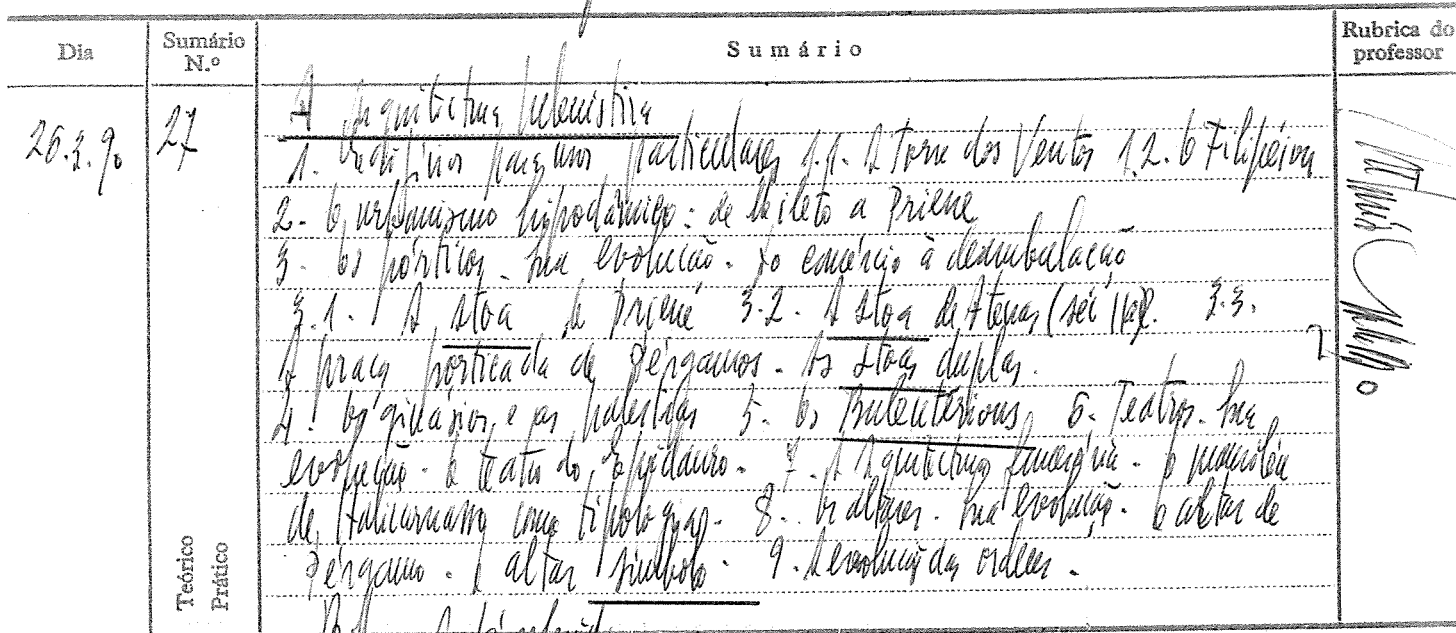 Dia
Sumário N.º
Sumário
Rubrica do professor
26.3.90
27
A Arquitectura helenística
1. Edifícios para usos particulares 1.1. A Torre dos Ventos 1.2. O Filipéion
2. O urbanismo hipodâmico: de Mileto a Priene
3. Os pórticos. Sua evolução. Do comércio à deambulação
3.1. A stoa de Priene 3.2. A stoa de Atenas (séc II a.C). 3.3.
A praça porticada de Pérgamos. As stoas duplas.
4. Os ginásios e as palestras 5. Os Buleutérions 6. Teatros. Sua
evolução. O teatro do Epidauro. 7. A Arquitectura funerária. O mausoléu
de Halicarnasso como tipologia. 8. Os altares. Sua evolução. O altar de
Pérgamo. O altar símbolo. 9. A evolução das ordens.
Teórico
Prático